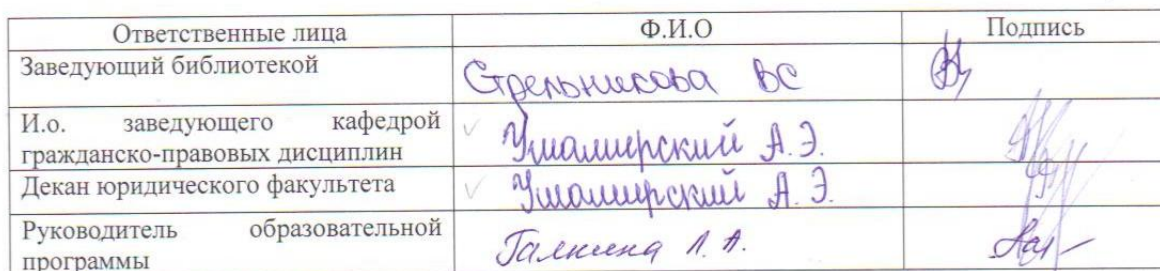 Ответственные лица Ф.И.О Подпись
Заведующий библиотекой Стрельникова ВС
И.о. заведующего кафедрой
гражданско-правовых дисциплин А.Э.
Декан юридического факультета А.Э.
Руководитель образовательной
программы Галкина Л.А.